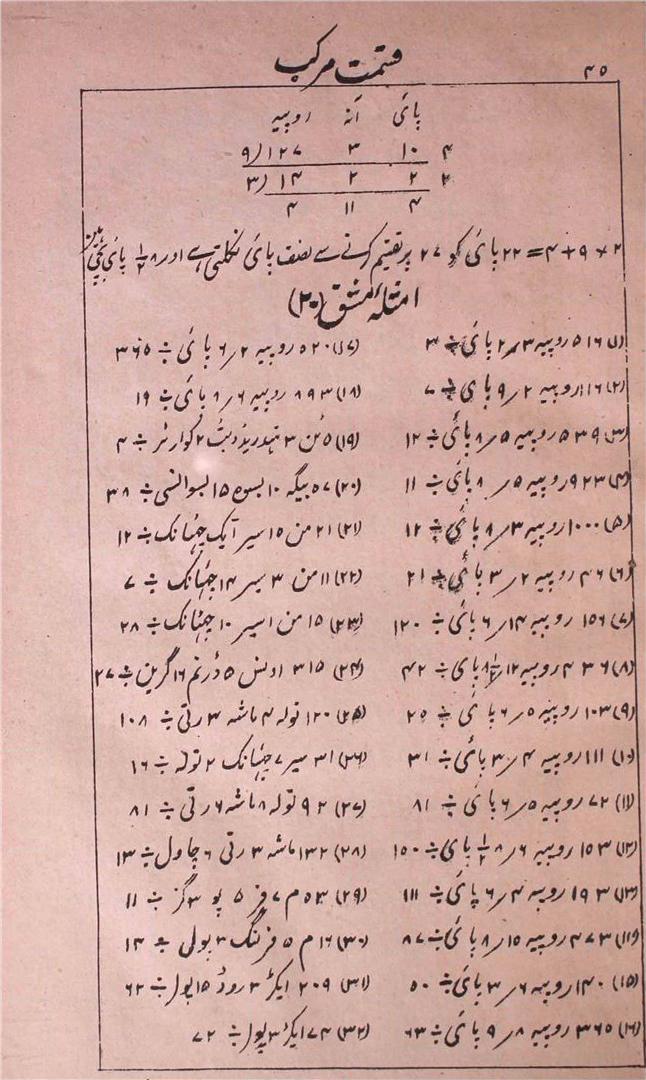 ۴۵
قسمت مرکب
پائی آنہ روپیہ
۴ ۱۰ ۳ ۱۲۷ (۹
۲ ۲ ۲ ۱۴ (۳
۴ ۱۱ ۴
۲ × ۹ + ۴ = ۲۲ پائی کو ۲۷ پر تقسیم کرنے سے نصف پائی نکلتی ہے اور ۸ ۱/۲ پائی بچی ہین
امثلہ مشق (۲۰)
(۱) ۵۱۶ روپیہ ۳ ر ۲ پائی ÷ ۳
(۲) ۱۱۶ روپیہ ۲ ر ۹ پائی ÷ ۷
(۳) ۵۳۹ روپیہ ۵ ر ۸ پائی ÷ ۱۲
(۴) ۹۲۳ روپیہ ۵ ر ۸ پائی ÷ ۱۱
(۵) ۱۰۰۰ روپیہ ۳ ر ۸ پائی ÷ ۱۲
(۶) ۴۶ روپیہ ۲ ر ۳ پائی ÷ ۲۱
(۷) ۱۵۶ روپیہ ۱۴ ر ۶ پائی ÷ ۱۲۰
(۸) ۴۳۶ روپیہ ۱۲ ر پائی ÷ ۴۲
(۹) ۱۰۳ روپیہ ۵ ر ۶ پائی ÷ ۲۵
(۱۰) ۱۱۱ روپیہ ۴ ر ۳ پائی ÷ ۳۱
(۱۱) ۷۲ روپیہ ۵ ر ۶ پائی ÷ ۸۱
(۱۲) ۱۵۳ روپیہ ۶ ر ۸ ۱/۲ پائی ÷ ۱۵۰
(۱۳) ۱۹۳ روپیہ ۴ ر ۶ پائی ÷ ۱۱۱
(۱۴) ۴۷۳ روپیہ ۱۵ ر ۸ پائی ÷ ۸۷
(۱۵) ۱۴۰ روپیہ ۶ ر ۳ پائی ÷ ۵۰
(۱۶) ۳۶۵ روپیہ ۸ ر ۹ پائی ÷ ۶۳
(۱۷) ۵۲۰ روپیہ ۲ ر ۶ پائی ÷ ۳۶۵
(۱۸) ۸۹۳ روپیہ ۶ ر ۸ پائی ÷ ۱۹
(۱۹) ۵ ٹن ۳ ہنڈریڈ ویٹ ۲ کوارٹر ÷ ۴
(۲۰) ۵۷ بیگہ ۱۰ بسوہ ۱۵ بسوانسی ÷ ۳۸
(۲۱) ۲۱ من ۱۵ سیر ایک چھٹانک ÷ ۱۲
(۲۲) ۱۱ من ۳ سیر ۱۴ چھٹانک ÷ ۷
(۲۳) ۱۵ من ۱ سیر ۱۰ چھٹانک ÷ ۲۸
(۲۴) ۳۱۵ اونس ۵ ڈرم ۱۶ گرین ÷ ۲۷
(۲۵) ۱۲۰ تولہ ۴ ماشہ ۳ رتی ÷ ۱۰۸
(۲۶) ۳۱ سیر ۷ چھٹانک ۲ تولہ ÷ ۱۶
(۲۷) ۹۲ تولہ ۸ ماشہ ۶ رتی ÷ ۸۱
(۲۸) ۱۳۲ ماشہ ۳ رتی ۶ چاول ÷ ۱۳
(۲۹) ۵۳ م ۷ فر ۵ پو ۳ گز ÷ ۱۱
(۳۰) ۱۶ م ۵ فرلنگ ۳ پولی ÷ ۱۴
(۳۱) ۲۰۹ ایکڑ ۳ روڈ ۱۵ پول ÷ ۶۲
(۳۲) ۷۴ ایکڑ ۳ پول ÷ ۷۲